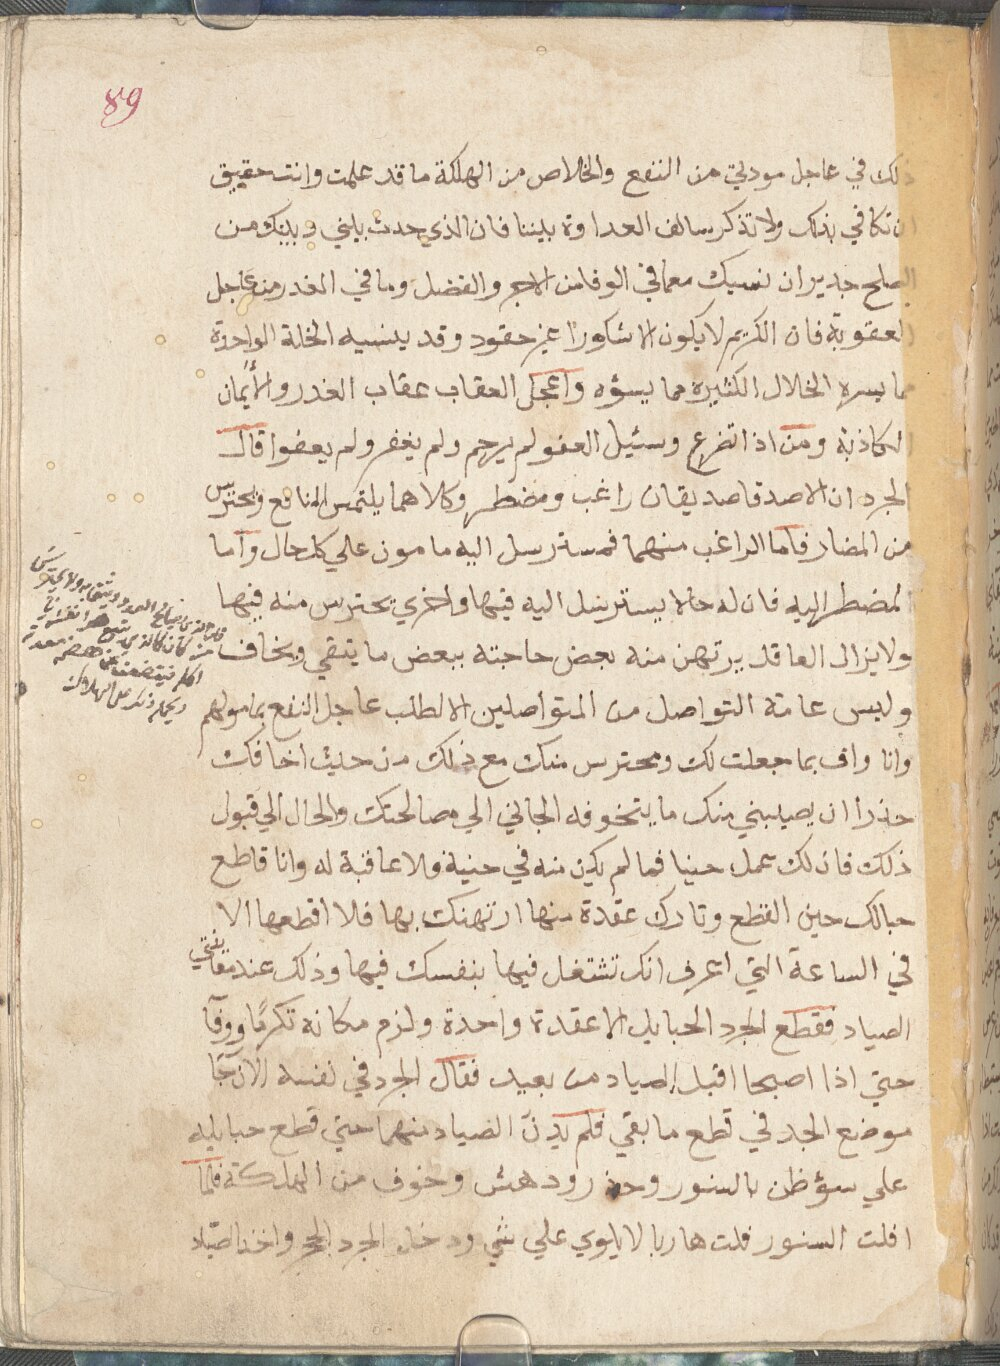 89
ذلك في عاجل مودتي من النفع والخلاص من الهلكة ما قد علمت وانت حقيق
ان تكافي بذلك ولا تذكر سالف العداوة بيننا فان الذي حدث بيني وبينك من
الصلح جدير ان ينسيك مع ما في الوفا من الاجر والفضل وما في الغدر من عاجل
العقوبة فان الكريم لا يكون الا شكورا غير حقود وقد ينسيه الخلة الواحدة
مما يسره الخلال الكثيرة مما يسؤه واعجل العقاب عقاب الغدر والأيمان
الكاذبة ومن اذا تضرع وسئيل العفو لم يرحم ولم يغفر ولم يعفوا قال
الجرد ان الاصدقا صديقان راغب ومضطر وكلاهما يلتمس المنافع ويحترس
من المضار فاما الراغب منهما فمسترسل اليه مامون علي كل حال واما
المضطر اليه فان له حالا يسترسل اليه فيها واخري يحترس منه فيها
ولا يزال العاقل يرتهن منه بعض حاجته ببعض ما يتقي ويخاف
وليس عامة التواصل من المتواصلين الا لطلب عاجل النفع بما مولهم
وانا واف بما جعلت لك ومحترس منك مع ذلك من حيث اخافك
حذرا ان يصيبني منك ما يتخوفه الجاني الي مصالحتك والحال الي قبول
ذلك فان لكل عمل حينا فما لم يكن منه في حنية ولا عاقبة له وانا قاطع
حبالك حين القطع وتارك عقدة منها ارتهنك بها فلا اقطعها الا
في الساعة التي اعرف انك تشتغل فيها بنفسك فيها وذلك عند معاينتي
الصياد فقطع الجرد الحبايل الا عقدة واحدة ولزم مكانه تكرمًا ووفآ
حتي اذا اصبحا اقبل الصياد من بعيد فقال الجرد في نفسه الآن جآ
موضع الجد في قطع ما بقي فلم يدن الصياد منهما حتي قطع حبايله
علي سؤ ظن بالسنور وحذر ودهش وخوف من الهلكة فلما
افلت السنور فلت هاربا لا يلوي علي شي ودخل الجرد الجحر واخذ الصياد